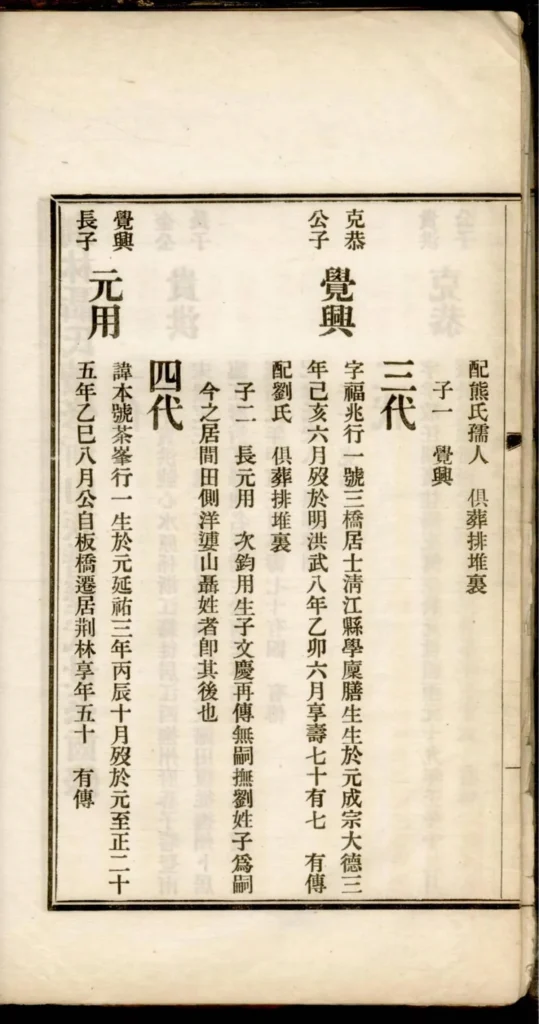 配熊氏孺人　俱葬排堆裏
子一　覺興
三代
克恭
公子
覺興
字福兆行一號三橋居士清江縣學廩膳生生於元成宗大德三
年己亥六月歿於明洪武八年乙卯六月享壽七十有七　有傳
配劉氏　俱葬排堆裏
子二　長元用　次鈞用生子文慶再傳無嗣撫劉姓子爲嗣
今之居間田側洋婆山聶姓者卽其後也
四代
覺興
長子
元用
諱本號茶峯行一生於元延祐三年丙辰十月歿於元至正二十
五年乙巳八月公自板橋遷居荆林享年五十　有傳